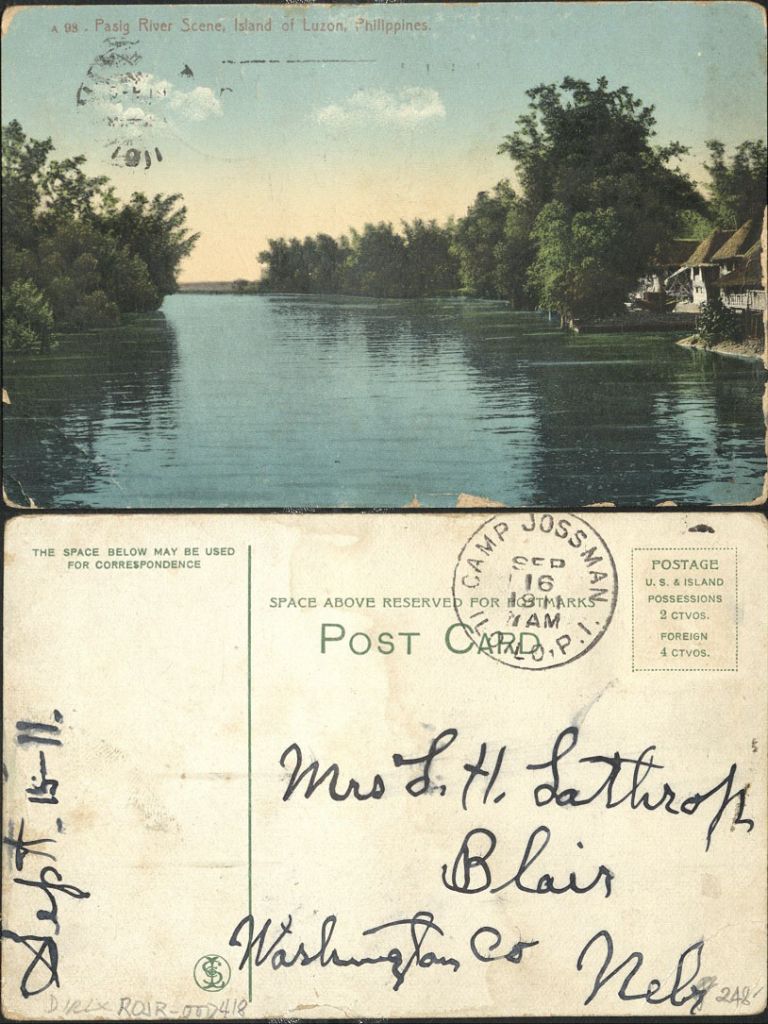 A 98. Pasig River Scene, Island of Luzon, Philippines.
1911
THE SPACE BELOW MAY BE USED
FOR CORRESPONDENCE
SPACE ABOVE RESERVED FOR POSTMARKS
POST CARD
CAMP JOSSMAN
SEP
16
1911
7AM
ILOILO, P.I.
POSTAGE
U. S. & ISLAND
POSSESSIONS
2 CTVOS.
FOREIGN
4 CTVOS.
Sept. 15-11.
Mrs L. H. Lathrop
Blair
Washington Co
Nebr
248